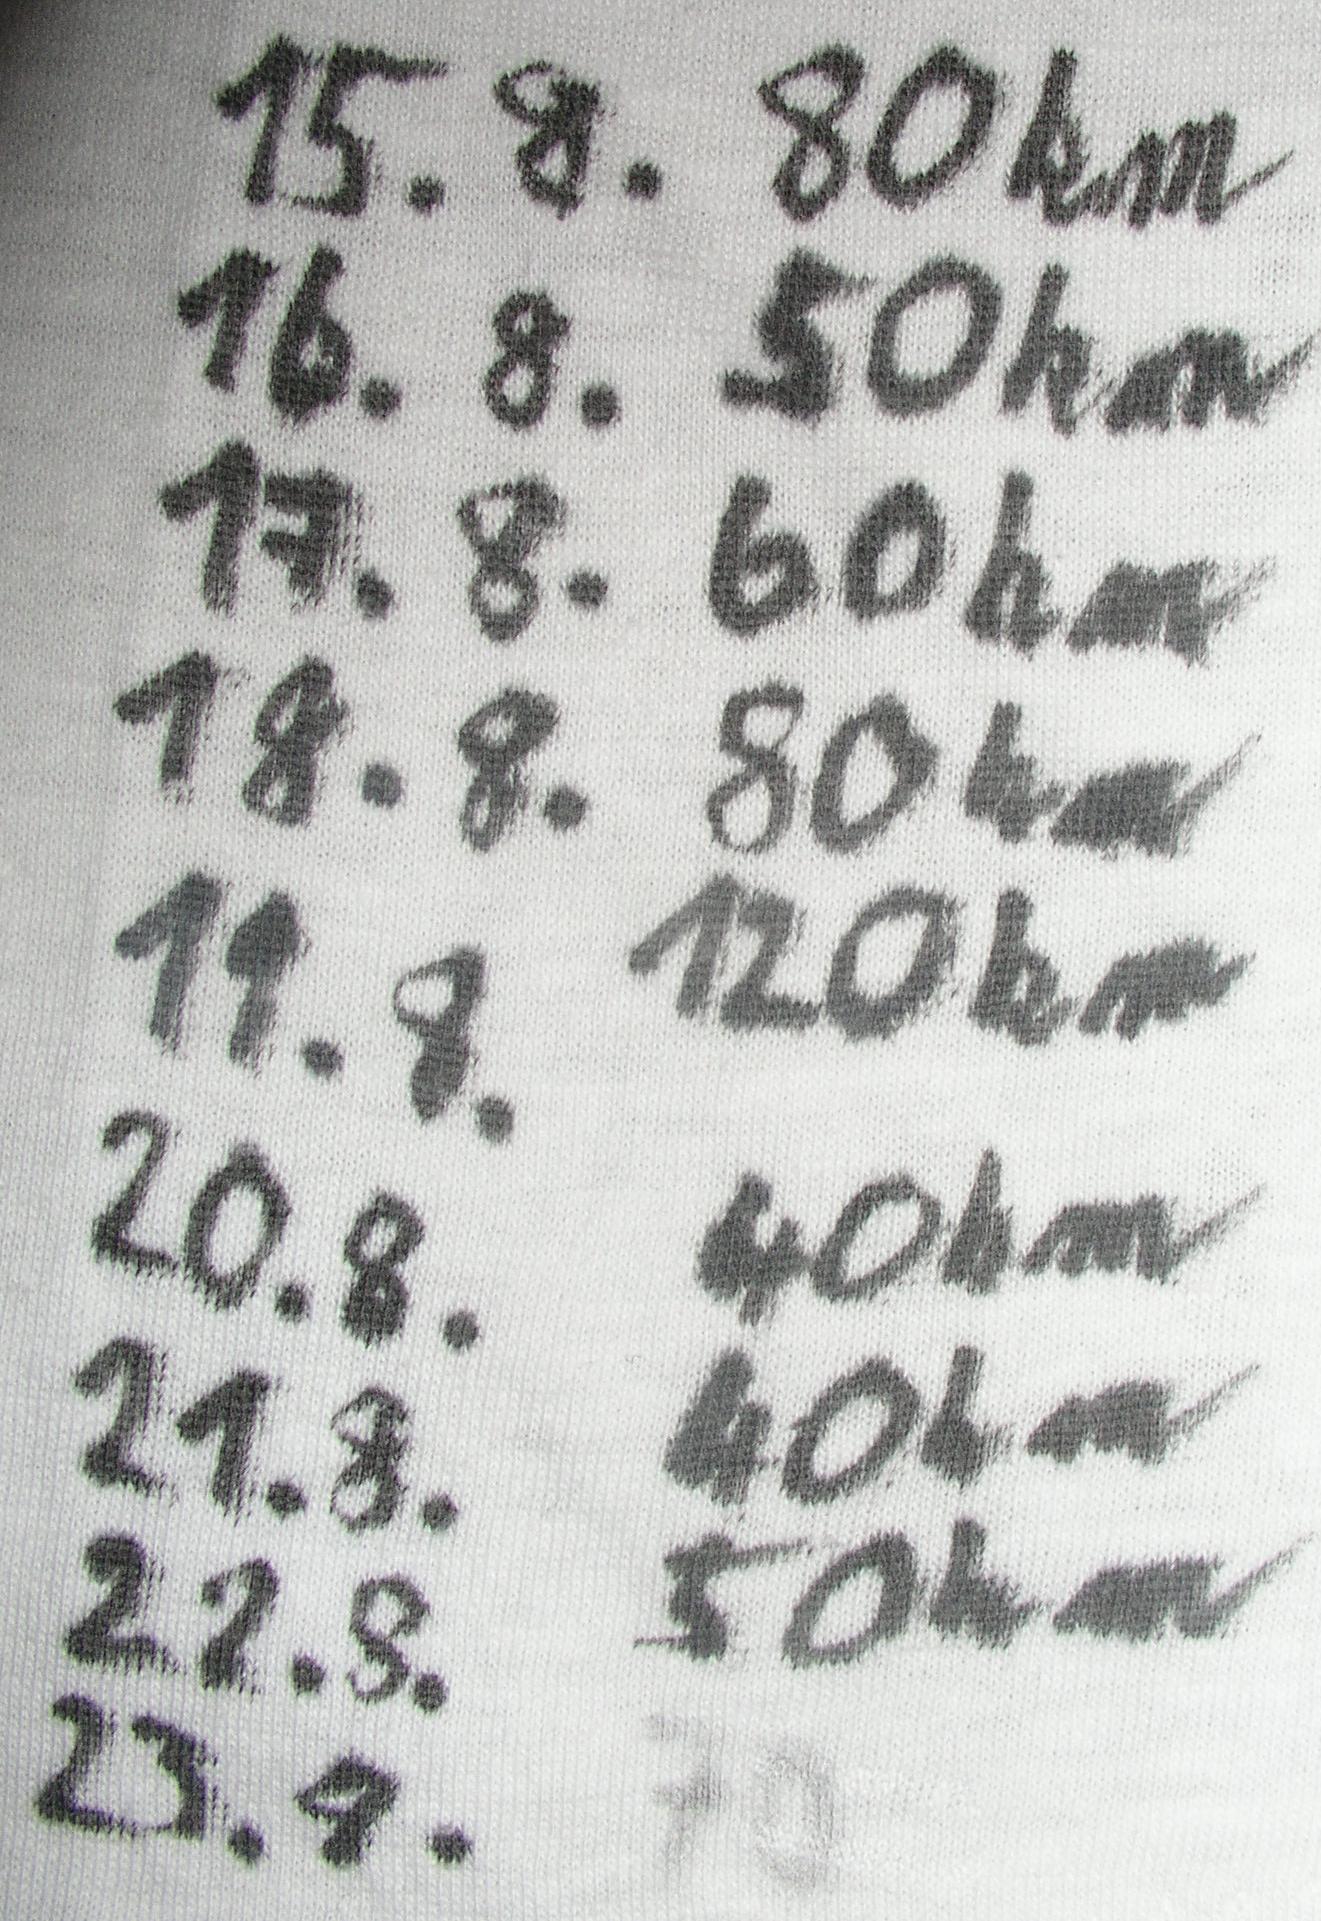 15. 8. 80km
16. 8. 50km
17. 8. 60km
18. 8. 80km
19. 8. 120km
20. 8. 40km
21. 8. 40km
22. 8. 50km
23. 8. 70